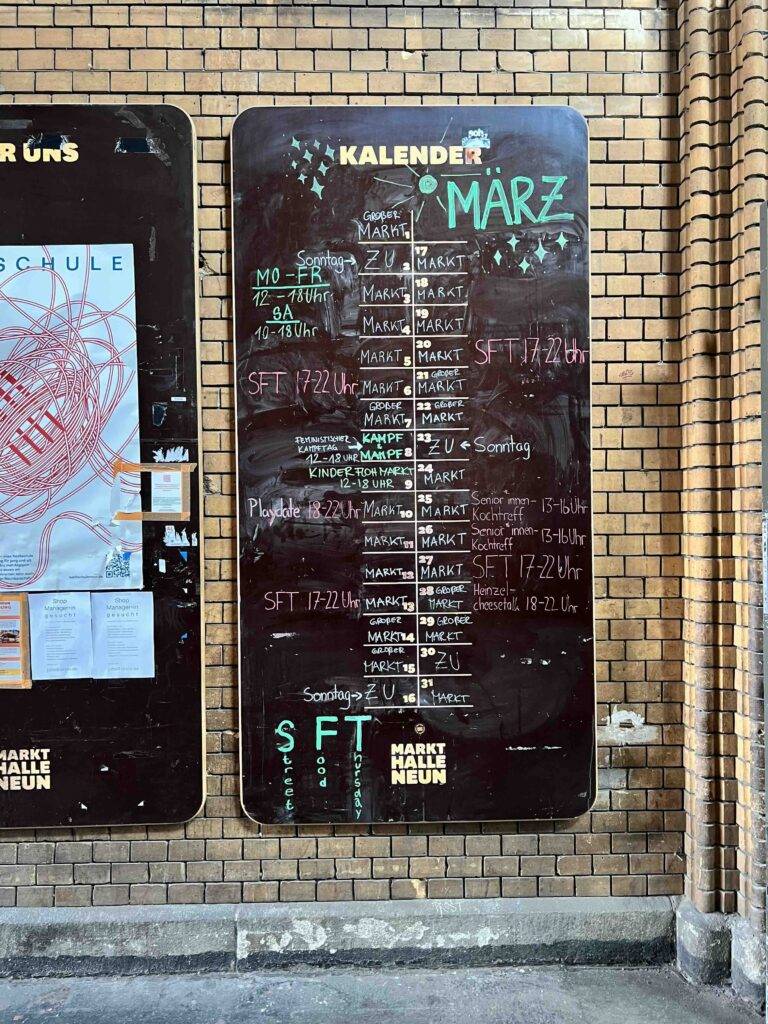 R UNS
SCHULE
Shop
Manager*in
gesucht
Shop
Manager*in
gesucht
MARKT
HALLE
NEUN
KALENDER
MÄRZ
GROẞER
MARKT 1
Sonntag → ZU 2
MO - FR
12 - 18 Uhr
SA
10-18 Uhr
MARKT 3
MARKT 4
MARKT 5
SFT 17-22 Uhr MARKT 6
GROẞER
MARKT 7
FEMINISTISCHER
KAMPFTAG
12-18 UHR
KAMPF
&
MAMPF 8
KINDERFLOHMARKT
12-18 UHR 9
Playdate 18-22 Uhr MARKT 10
MARKT 11
MARKT 12
SFT 17-22 Uhr MARKT 13
GROẞER
MARKT 14
GROẞER
MARKT 15
Sonntag → ZU 16
17
MARKT
18
MARKT
19
MARKT
20
MARKT SFT 17-22 Uhr
21 GROẞER
MARKT
22 GROẞER
MARKT
23
ZU ← Sonntag
24
MARKT
25
MARKT
Senior*innen- 13-16 Uhr
Kochtreff
26
MARKT
Senior*innen- 13-16 Uhr
Kochtreff
27
MARKT SFT 17-22 Uhr
28 GROẞER
MARKT
Heinzel-
cheesetalk 18-22 Uhr
29 GROẞER
MARKT
30
ZU
31
MARKT
Street
Food
Thursday
MARKT
HALLE
NEUN